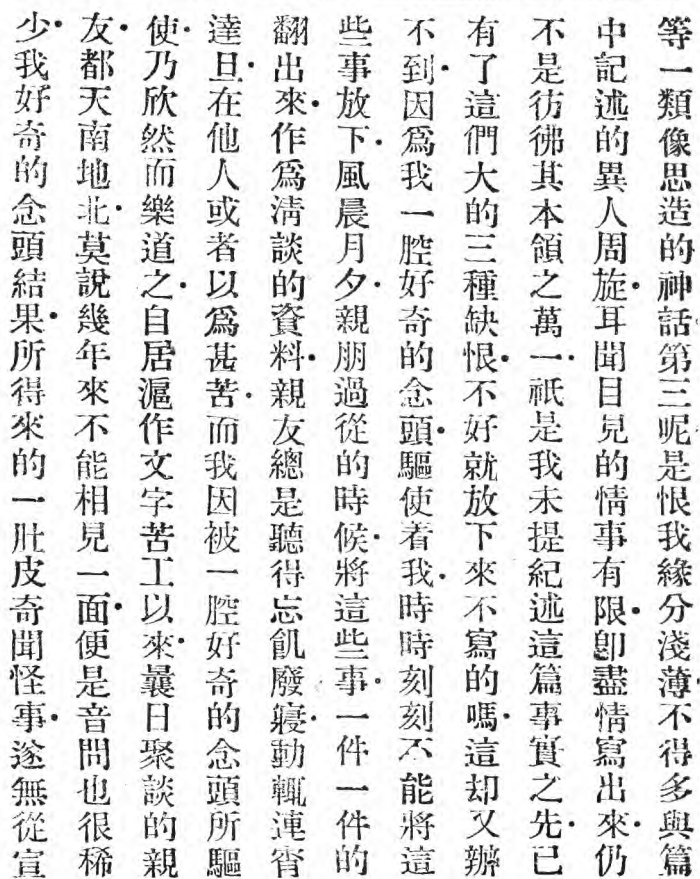 等一類像思造的神話第三呢是恨我緣分淺薄不得多與篇
中記述的異人周旋·耳聞目見的情事有限·卽盡情寫出來·仍
不是彷彿其本領之萬一·祇是我未提紀述這篇事實之先·已
有了這們大的三種缺恨·不好就放下來不寫的嗎·這却又辦
不到·因爲我一腔好奇的念頭·驅使着我·時時刻刻不能將這
些事放下·風晨月夕·親朋過從的時候·將這些事·一件一件的
翻出來·作爲淸談的資料·親友總是聽得忘飢廢寢·動輒連宵
達旦·在他人或者以爲甚苦·而我因被一腔好奇的念頭所驅
使·乃欣然而樂道之·自居滬作文字苦工以來·曩日聚談的親
友·都天南地北·莫說幾年來不能相見一面·便是音問也很稀
少·我好奇的念頭結果·所得來的一肚皮奇聞怪事·遂無從宣